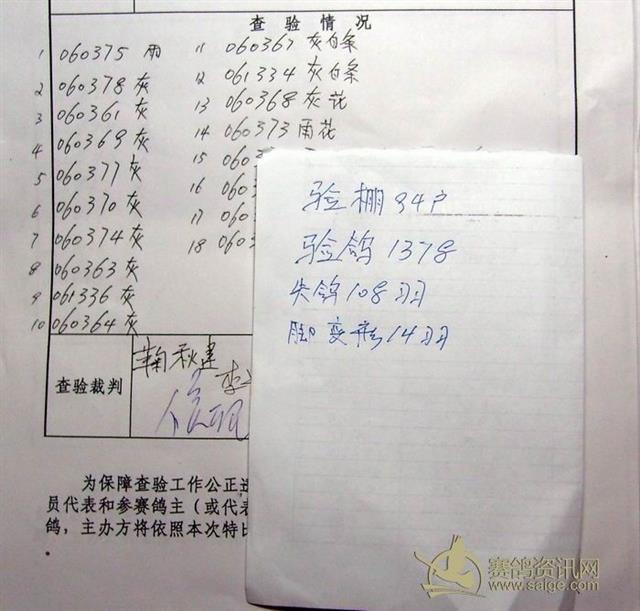 查 验 情 况
1 060375 雨
2 060378 灰
3 060361 灰
4 060369 灰
5 060377 灰
6 060370 灰
7 060374 灰
8 060363 灰
9 061336 灰
10 060364 灰
11 060367 灰白条
12 061334 灰白条
13 060368 灰花
14 060373 雨花
15 060
16 060
17 060
18 060
查验裁判
鞠秋建
验棚94户
验鸽1378
失鸽108羽
脚变形14羽
为保障查验工作公正
员代表和参赛鸽主（或代表
鸽，主办方将依照本次特比
赛鸽资讯网
www.saige.com